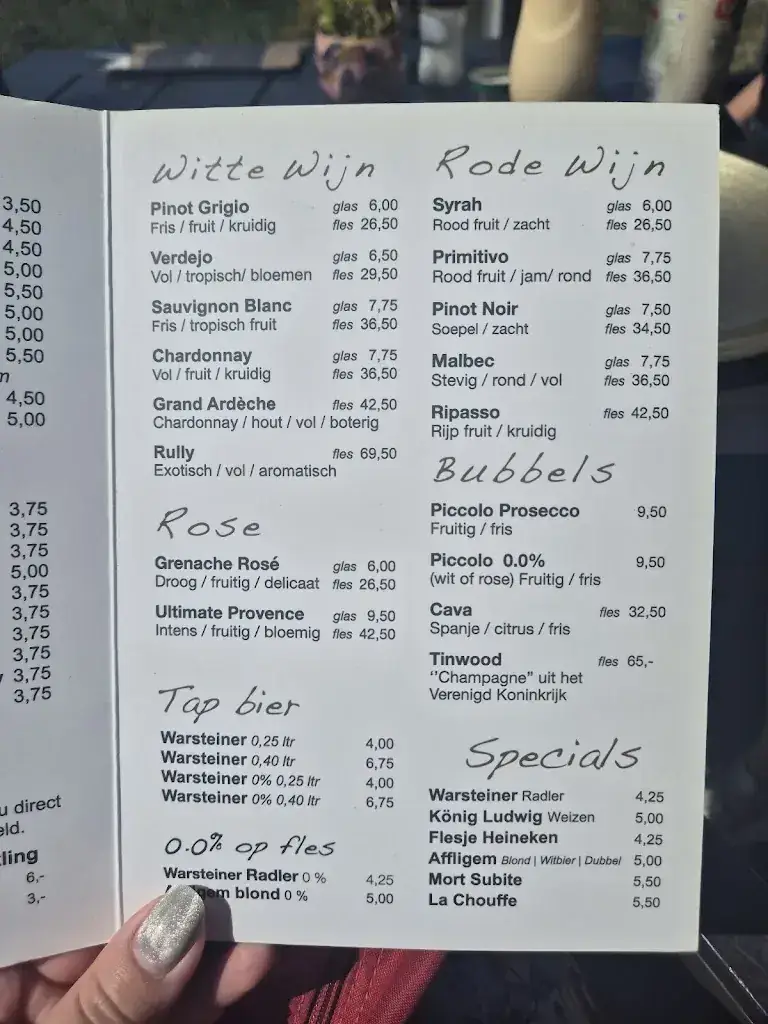 3,50
4,50
4,50
5,00
5,50
5,00
5,00
5,50
4,50
5,00
3,75
3,75
3,75
5,00
3,75
3,75
3,75
3,75
3,75
3,75
u direct
eld.
tling
6,-
3,-
Witte Wijn
Pinot Grigio glas 6,00
Fris / fruit / kruidig fles 26,50
Verdejo glas 6,50
Vol / tropisch/ bloemen fles 29,50
Sauvignon Blanc glas 7,75
Fris / tropisch fruit fles 36,50
Chardonnay glas 7,75
Vol / fruit / kruidig fles 36,50
Grand Ardèche fles 42,50
Chardonnay / hout / vol / boterig
Rully fles 69,50
Exotisch / vol / aromatisch
Rose
Grenache Rosé glas 6,00
Droog / fruitig / delicaat fles 26,50
Ultimate Provence glas 9,50
Intens / fruitig / bloemig fles 42,50
Tap bier
Warsteiner 0,25 ltr 4,00
Warsteiner 0,40 ltr 6,75
Warsteiner 0% 0,25 ltr 4,00
Warsteiner 0% 0,40 ltr 6,75
0.0% op fles
Warsteiner Radler 0 % 4,25
blond 0 % 5,00
Rode Wijn
Syrah glas 6,00
Rood fruit / zacht fles 26,50
Primitivo glas 7,75
Rood fruit / jam/ rond fles 36,50
Pinot Noir glas 7,50
Soepel / zacht fles 34,50
Malbec glas 7,75
Stevig / rond / vol fles 36,50
Ripasso fles 42,50
Rijp fruit / kruidig
Bubbels
Piccolo Prosecco 9,50
Fruitig / fris
Piccolo 0.0% 9,50
(wit of rose) Fruitig / fris
Cava fles 32,50
Spanje / citrus / fris
Tinwood fles 65,-
‘'Champagne” uit het
Verenigd Koninkrijk
Specials
Warsteiner Radler 4,25
König Ludwig Weizen 5,00
Flesje Heineken 4,25
Affligem Blond | Witbier | Dubbel 5,00
Mort Subite 5,50
La Chouffe 5,50